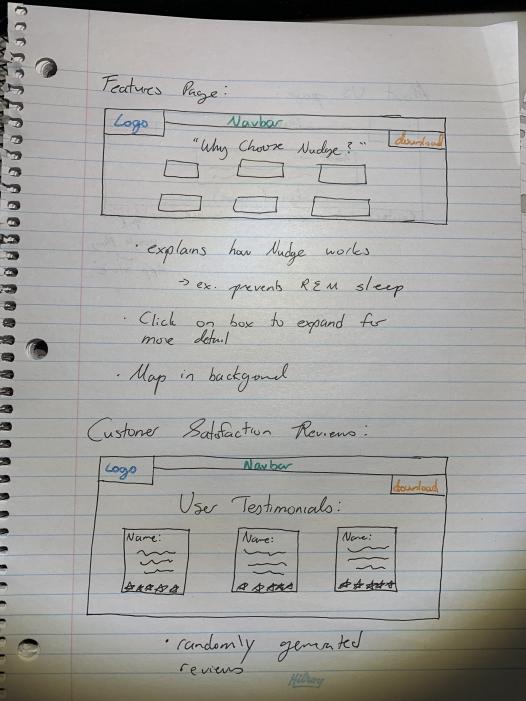 Features Page:
Logo
Navbar
download
"Why Choose Nudge?"
· explains how Nudge works
→ ex. prevents REM sleep
· Click on box to expand for
more detail
· Map in backgound
Customer Satisfaction Reviews:
Logo
Navbar
download
User Testimonials:
Name:
Name:
Name:
· randomly generated
reviews
Hilroy